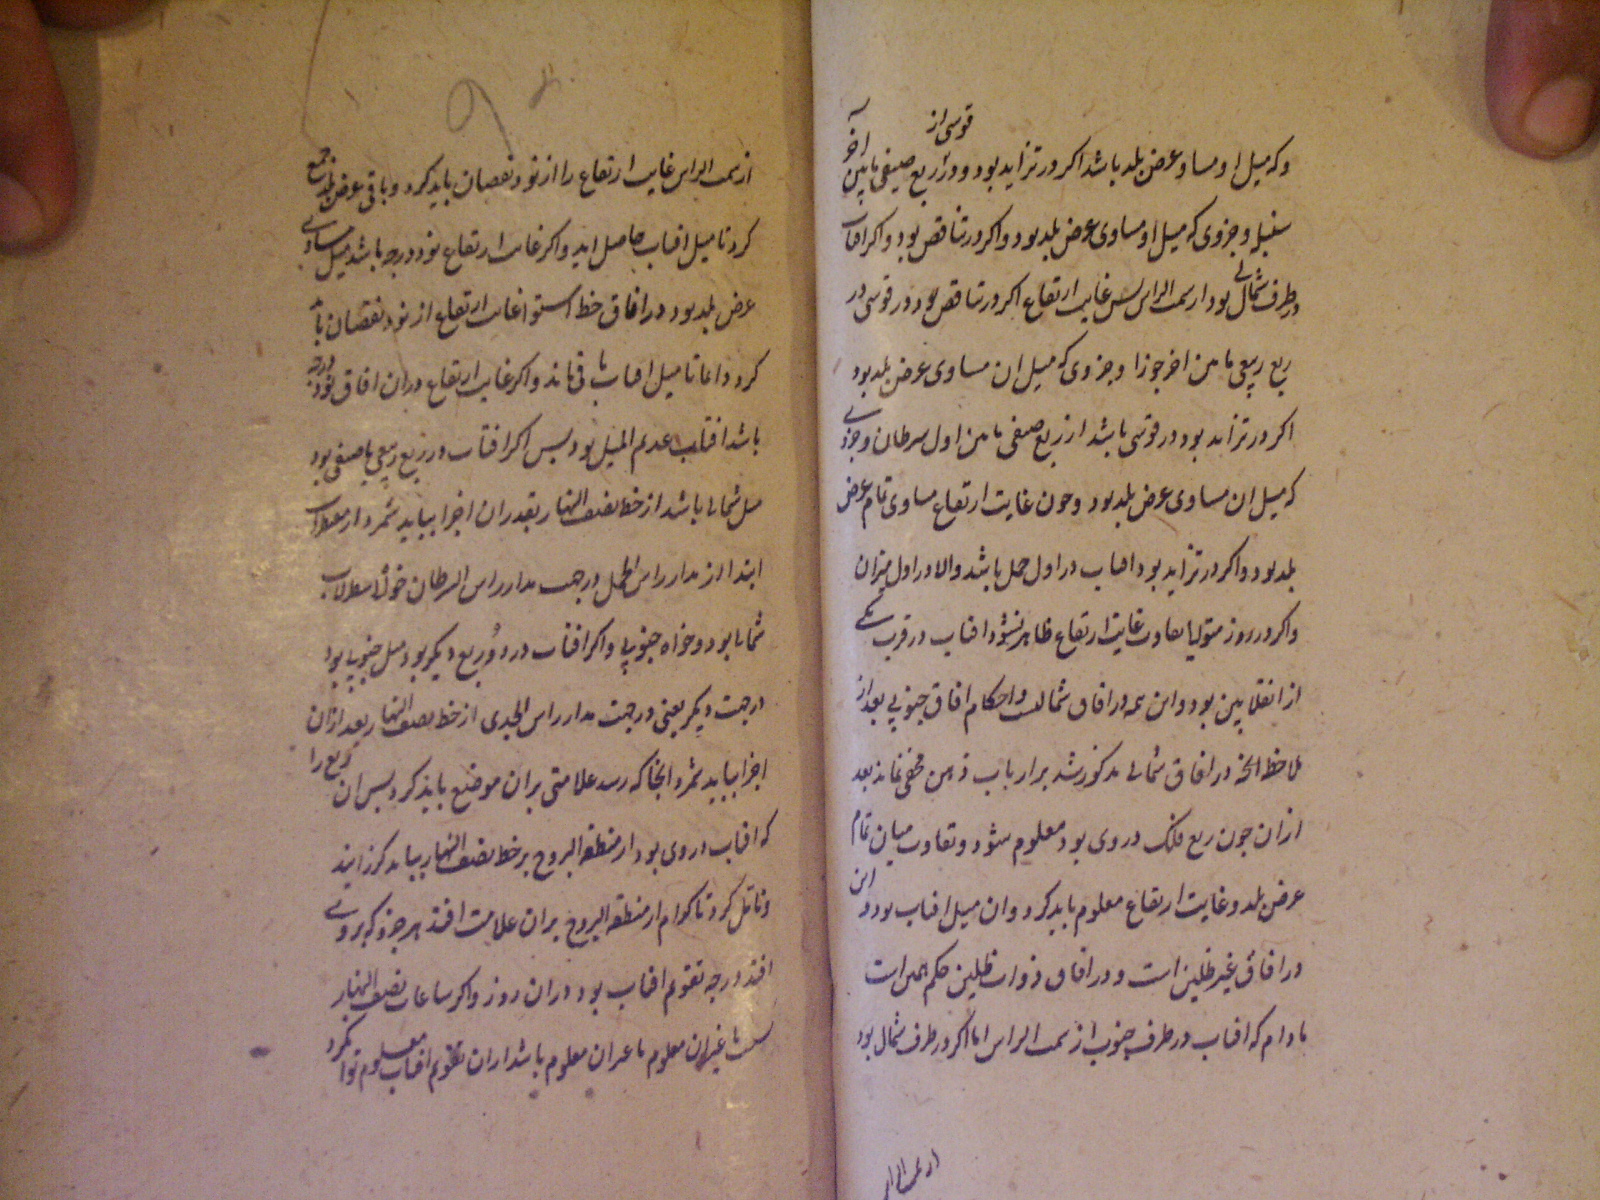 وکه میل او مساو عرض بلد باشد اکر در تزاید بود و در ربع صیفی مابین آخر
قوسی از
سنبله و جزوی که میل او مساوی عرض بلد بود و اکر در تناقص بود و اکر افتاب
در طرف شمالی بود از سمت الراس پس غایت ارتفاع اکر در تناقص بود در قوسی در
ربع ربیعی مابین اخر جوزا و جزوی که میل ان مساوی عرض بلد بود
اکر در تزاید بود در قوسی باشد از ربع صیفی مابین اول سرطان و جزوی
که میل ان مساوی عرض بلد بود و چون غایت ارتفاع مساوی تمام عرض
بلد بود و اکر در تزاید بود افتاب در اول حمل باشد والا در اول میزان
و اکر در روز متوالیا تفاوت غایت ارتفاع ظاهر نشود افتاب در قرب یکی
از انقلابین بود و این همه در افاق شمالیست و احکام افاق جنوبی بعد از
ملاحظه انچه در افاق شمالی مذکور شد بر ارباب ذهن مخفی نماند بعد
ازان چون ربع فلک در وی بود معلوم شود و تفاوت میان تمام
عرض بلد و غایت ارتفاع معلوم باید کرد و ان میل افتاب بود و این
در افاق غیر ظلین است و در افاق ذوات ظلین حکم همین است
مادام که افتاب در طرف جنوب از سمت الراس اما اکر در طرف شمال بود
از سمت الراس
از سمت الراس غایت ارتفاع را از نود نقصان باید کرد و باقی عرض بلد جمع
کرد تا میل افتاب حاصل اید و اکر غایت ارتفاع نود درجه باشد میل مساوی
عرض بلد بود و در افاق خط استوا غایت ارتفاع از نود نقصان باید
کرد دائما تا میل افتاب باقی ماند و اکر غایت ارتفاع دران افاق نود درجه
باشد افتاب عدیم المیل بود پس اکر افتاب در ربع ربیعی یا صیفی بود
میل شمالی باشد از خط نصف النهار بقدر ان اجزا بباید شمرد از مقنطرات
ابتدا از مدار راس الحمل در جهت مدار راس السرطان خواه اسطرلاب
شمالی بود و خواه جنوبی و اکر افتاب در دو ربع دیکر بود میل جنوبی بود
در جهت دیکر یعنی در جهت مدار راس الجدی از خط نصف النهار بعدد ان
اجزا بباید شمرد انجا که رسد علامتی بران موضع باید کرد پس ان ربع را
که افتاب در وی بود از منطقة البروج بر خط نصف النهار بباید کذرانید
و تامل کرد تا کدام از منطقة البروج بران علامت افتد هر جزو که بروی
افتد درجه تقویم افتاب بود دران روز و اکر ساعات نصف النهار
یا غیر ان معلوم باشد ازان تقویم افتاب معلوم توان کرد